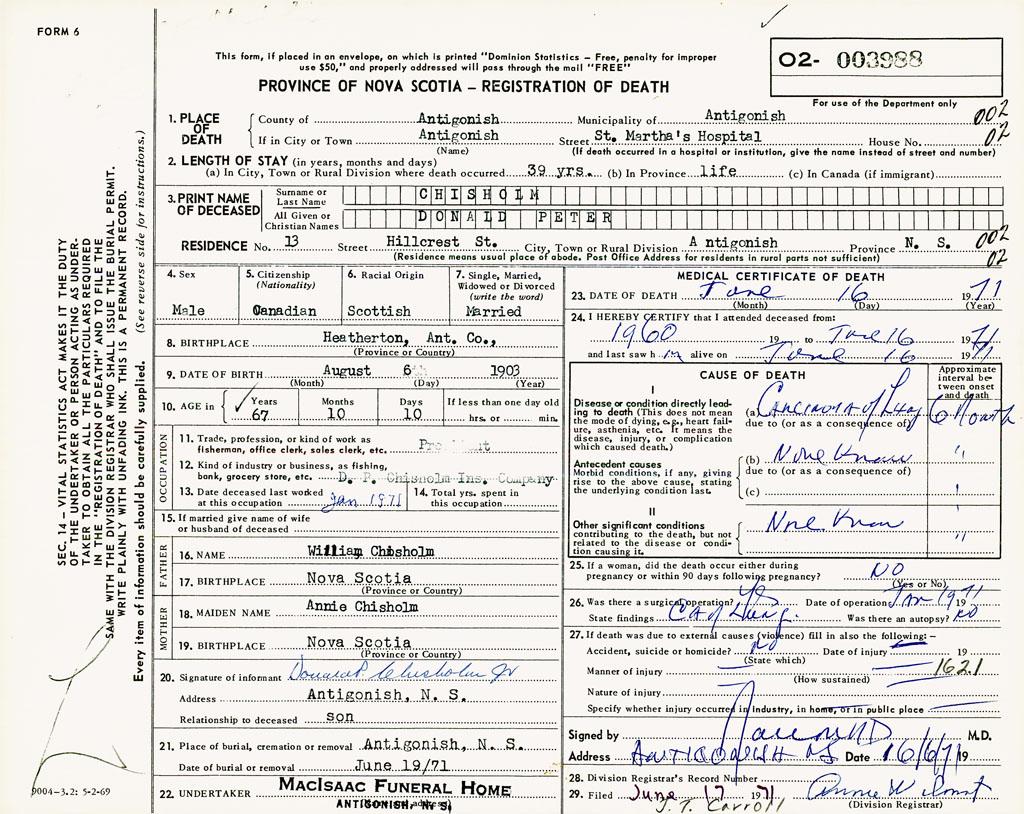 FORM 6
This form, if placed in an envelope, on which is printed "Dominion Statistics – Free, penalty for improper
use $50," and properly addressed will pass through the mail "FREE"
PROVINCE OF NOVA SCOTIA – REGISTRATION OF DEATH
02- 003988
For use of the Department only
SEC. 14 – VITAL STATISTICS ACT MAKES IT THE DUTY
OF THE UNDERTAKER OR PERSON ACTING AS UNDER-
TAKER TO OBTAIN ALL THE PARTICULARS REQUIRED
IN THE "REGISTRATION OF DEATH" AND TO FILE THE
SAME WITH THE DIVISION REGISTRAR WHO SHALL ISSUE THE BURIAL PERMIT.
WRITE PLAINLY WITH UNFADING INK. THIS IS A PERMANENT RECORD.
Every item of information should be carefully supplied. (See reverse side for instructions.)
1. PLACE OF DEATH
County of Antigonish Municipality of Antigonish 002
If in City or Town Antigonish Street St. Martha's Hospital House No. 02
(Name) (If death occurred in a hospital or institution, give the name instead of street and number)
2. LENGTH OF STAY (in years, months and days)
(a) In City, Town or Rural Division where death occurred 39 yrs. (b) In Province life (c) In Canada (if immigrant)
3. PRINT NAME OF DECEASED
Surname or Last Name CHISHOLM
All Given or Christian Names DONALD PETER
RESIDENCE No. 13 Street Hillcrest St. City, Town or Rural Division Antigonish Province N. S. 002
(Residence means usual place of abode. Post Office Address for residents in rural parts not sufficient) 02
4. Sex
Male
5. Citizenship (Nationality)
Canadian
6. Racial Origin
Scottish
7. Single, Married, Widowed or Divorced (write the word)
Married
8. BIRTHPLACE Heatherton, Ant. Co.,
(Province or Country)
9. DATE OF BIRTH August 6 1903
(Month) (Day) (Year)
10. AGE in Years 67 Months 10 Days 10 If less than one day old hrs. or min.
OCCUPATION
11. Trade, profession, or kind of work as
fisherman, office clerk, sales clerk, etc.
12. Kind of industry or business, as fishing,
bank, grocery store, etc. D. P. Chisholm Ins. Company
13. Date deceased last worked at this occupation Jan 1971
14. Total yrs. spent in this occupation
15. If married give name of wife
or husband of deceased
FATHER
16. NAME William Chisholm
17. BIRTHPLACE Nova Scotia
(Province or Country)
MOTHER
18. MAIDEN NAME Annie Chisholm
19. BIRTHPLACE Nova Scotia
(Province or Country)
20. Signature of informant Donald P. Chisholm Jr
Address Antigonish, N. S.
Relationship to deceased son
21. Place of burial, cremation or removal Antigonish, N. S.
Date of burial or removal June 19/71
22. UNDERTAKER MacIsaac Funeral Home
ANTIGONISH, N. S.
9004–3.2: 5-2-69
MEDICAL CERTIFICATE OF DEATH
23. DATE OF DEATH June 16 1971
(Month) (Day) (Year)
24. I HEREBY CERTIFY that I attended deceased from:
1960 19 to June 16 1971
and last saw him alive on June 16 1971
CAUSE OF DEATH
Approximate interval between onset and death
I
Disease or condition directly lead-
ing to death (This does not mean
the mode of dying, e.g., heart fail-
ure, asthenia, etc. It means the
disease, injury, or complication
which caused death.)
(a) Carcinoma of Lung 6 Month
due to (or as a consequence of)
Antecedent causes
Morbid conditions, if any, giving
rise to the above cause, stating
the underlying condition last.
(b) None Known "
due to (or as a consequence of)
(c)
II
Other significant conditions
contributing to the death, but not
related to the disease or condi-
tion causing it.
None Known "
25. If a woman, did the death occur either during
pregnancy or within 90 days following pregnancy? NO
(Yes or No)
26. Was there a surgical operation? Yes Date of operation Jan 1971 19
State findings CA of Lung Was there an autopsy? no
27. If death was due to external causes (violence) fill in also the following:–
Accident, suicide or homicide? no Date of injury 19
(State which)
Manner of injury 162.1
(How sustained)
Nature of injury
Specify whether injury occurred in industry, in home, or in public place
Signed by M.D.
Address ANTIGONISH NS Date 16/6/71 19
28. Division Registrar's Record Number
29. Filed June 17 1971
J. T. Carroll (Division Registrar)